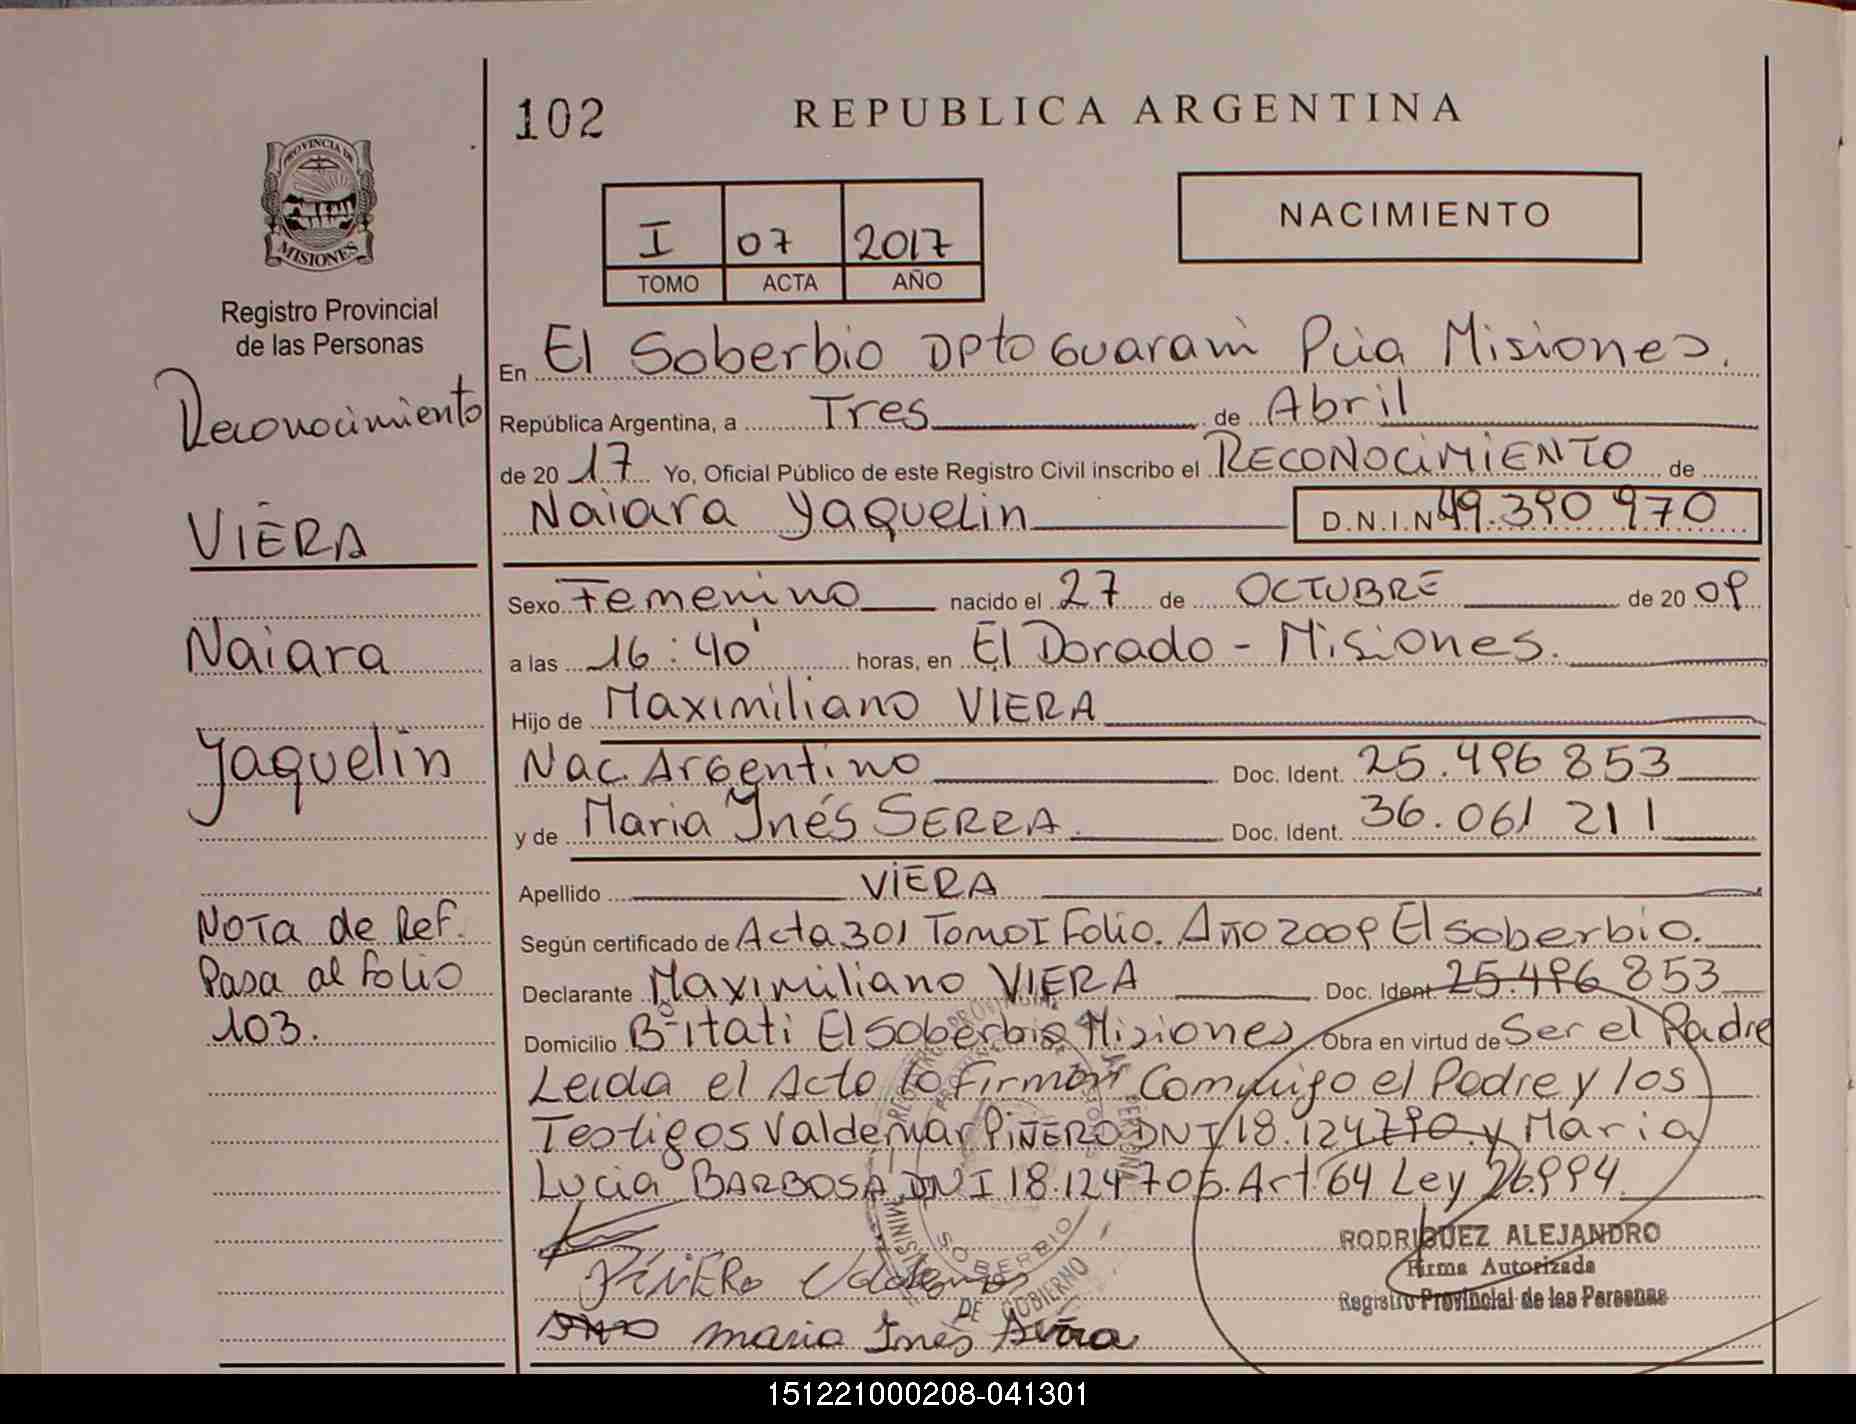 102
REPUBLICA ARGENTINA
PROVINCIA DE
MISIONES
NACIMIENTO
I 07 2017
TOMO ACTA AÑO
Registro Provincial
de las Personas
Reconocimiento
VIERA
Naiara
Yaquelin
NOTA de Ref.
Pasa al Folio
103.
En El Soberbio DPto Guaraní Pcia Misiones.
República Argentina, a Tres de Abril
de 2017 Yo, Oficial Público de este Registro Civil inscribo el RECONOCIMIENTO de
Naiara Yaquelin D.N.I.N 49.390 970
Sexo Femenino nacido el 27 de OCTUBRE de 2009
a las 16:40' horas, en El Dorado - Misiones.
Hijo de Maximiliano VIERA
Nac. Argentino Doc. Ident. 25.496 853
y de Maria Inés SERRA. Doc. Ident. 36.061 211
Apellido VIERA
Según certificado de Acta 301 Tomo I Folio. Año 2009 El Soberbio.
Declarante Maximiliano VIERA Doc. Ident. 25.496 853
Domicilio Bº Itati El Soberbio Misiones Obra en virtud de Ser el Padre
Leida el Acto lo Firman Conmigo el Padre y los
Testigos Valdemar PIÑERO DNI 18.124790 y Maria
Lucia BARBOSA DNI 18.124705. Art 64 Ley 26994.
PIÑERO
maria Ines
SOBERBIO
DE GOBIERNO
RODRIGUEZ ALEJANDRO
Firma Autorizada
Registro Provincial de las Personas
151221000208-041301